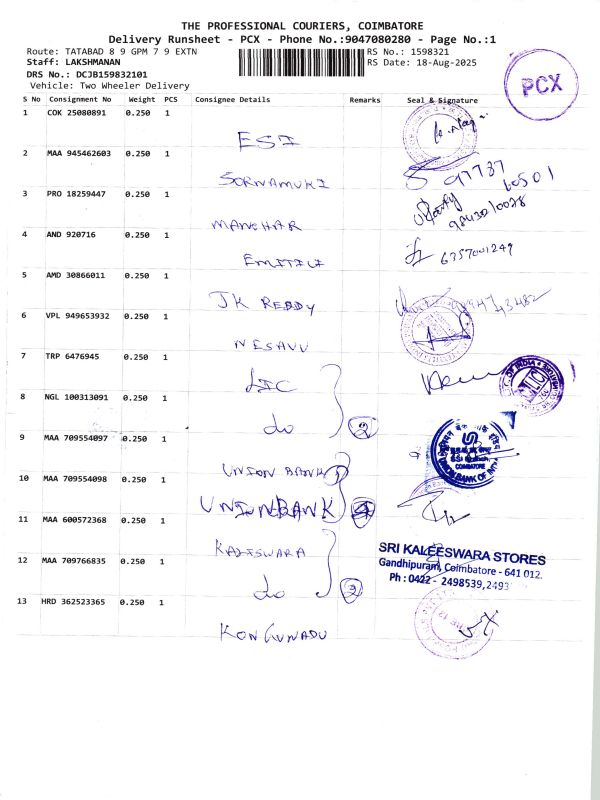 THE PROFESSIONAL COURIERS, COIMBATORE
Delivery Runsheet - PCX - Phone No.:9047080280 - Page No.:1
Route: TATABAD 8 9 GPM 7 9 EXTN
RS No.: 1598321
Staff: LAKSHMANAN
RS Date: 18-Aug-2025
DRS No.: DCJB159832101
Vehicle: Two Wheeler Delivery
PCX
S No Consignment No Weight PCS Consignee Details Remarks Seal & Signature
1 COK 25080891 0.250 1
ESI
2 MAA 945462603 0.250 1
SORNAMUKI
97737
60501
3 PRO 18259447 0.250 1
MANOHAR
9843010028
4 AND 920716 0.250 1
EMITICI
6357001249
5 AMD 30866011 0.250 1
JK REDDY
6 VPL 949653932 0.250 1
NESAVU
7 TRP 6476945 0.250 1
LIC
LIC OF INDIA
8 NGL 100313091 0.250 1
do 2
9 MAA 709554097 0.250 1
UNION BANK
COIMBATORE
UNION BANK OF INDIA
10 MAA 709554098 0.250 1
UNION BANK 4
11 MAA 600572368 0.250 1
KALISWARA
SRI KALEESWARA STORES
Gandhipuram, Coimbatore - 641 012.
Ph : 0422 - 2498539, 2493
12 MAA 709766835 0.250 1
do 2
13 HRD 362523365 0.250 1
KONGUNADU